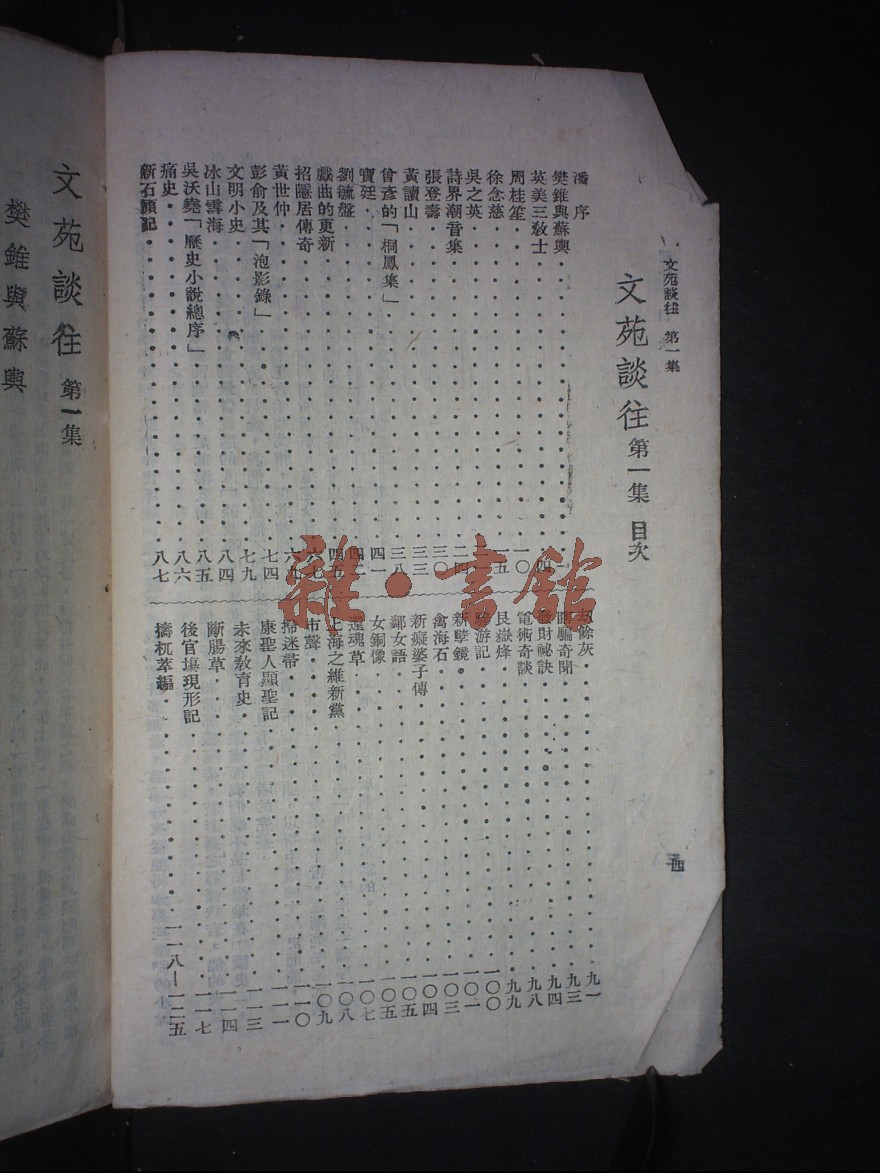 文苑談往 第一集
文苑談往 第一集 目次
潘序
樊錐與蘇輿 一
英美三教士 四
周桂笙 一〇
徐念慈 一五
吳之英
詩界潮音集 二四
張登壽 三〇
黃讀山 三三
曾彥的「桐鳳集」 三八
寶廷 四一
劉毓盤 四二
戲曲的更新 四五
招隱居傳奇 六七
黃世仲 六九
彭俞及其「泡影錄」 七四
文明小史 七九
冰山雪海 八四
吳沃堯「歷史小說總序」 八五
痛史 八六
新石頭記 八七
劫餘灰 九一
瞎騙奇聞 九三
發財祕訣 九四
電術奇談 九八
艮嶽烽 九九
游記 一〇〇
新孽鏡 一〇一
禽海石 一〇三
新癡婆子傳 一〇四
鄰女語 一〇五
女銅像 一〇五
還魂草 一〇七
上海之維新黨 一〇八
市聲 一〇九
掃迷帚 一一〇
康聖人顯聖記 一一一
未來教育史 一一三
斷腸草 一一四
後官場現形記 一一七
擣杌萃編 一一八—一二五
四
雜·書館
文苑談往 第一集
樊錐與蘇輿